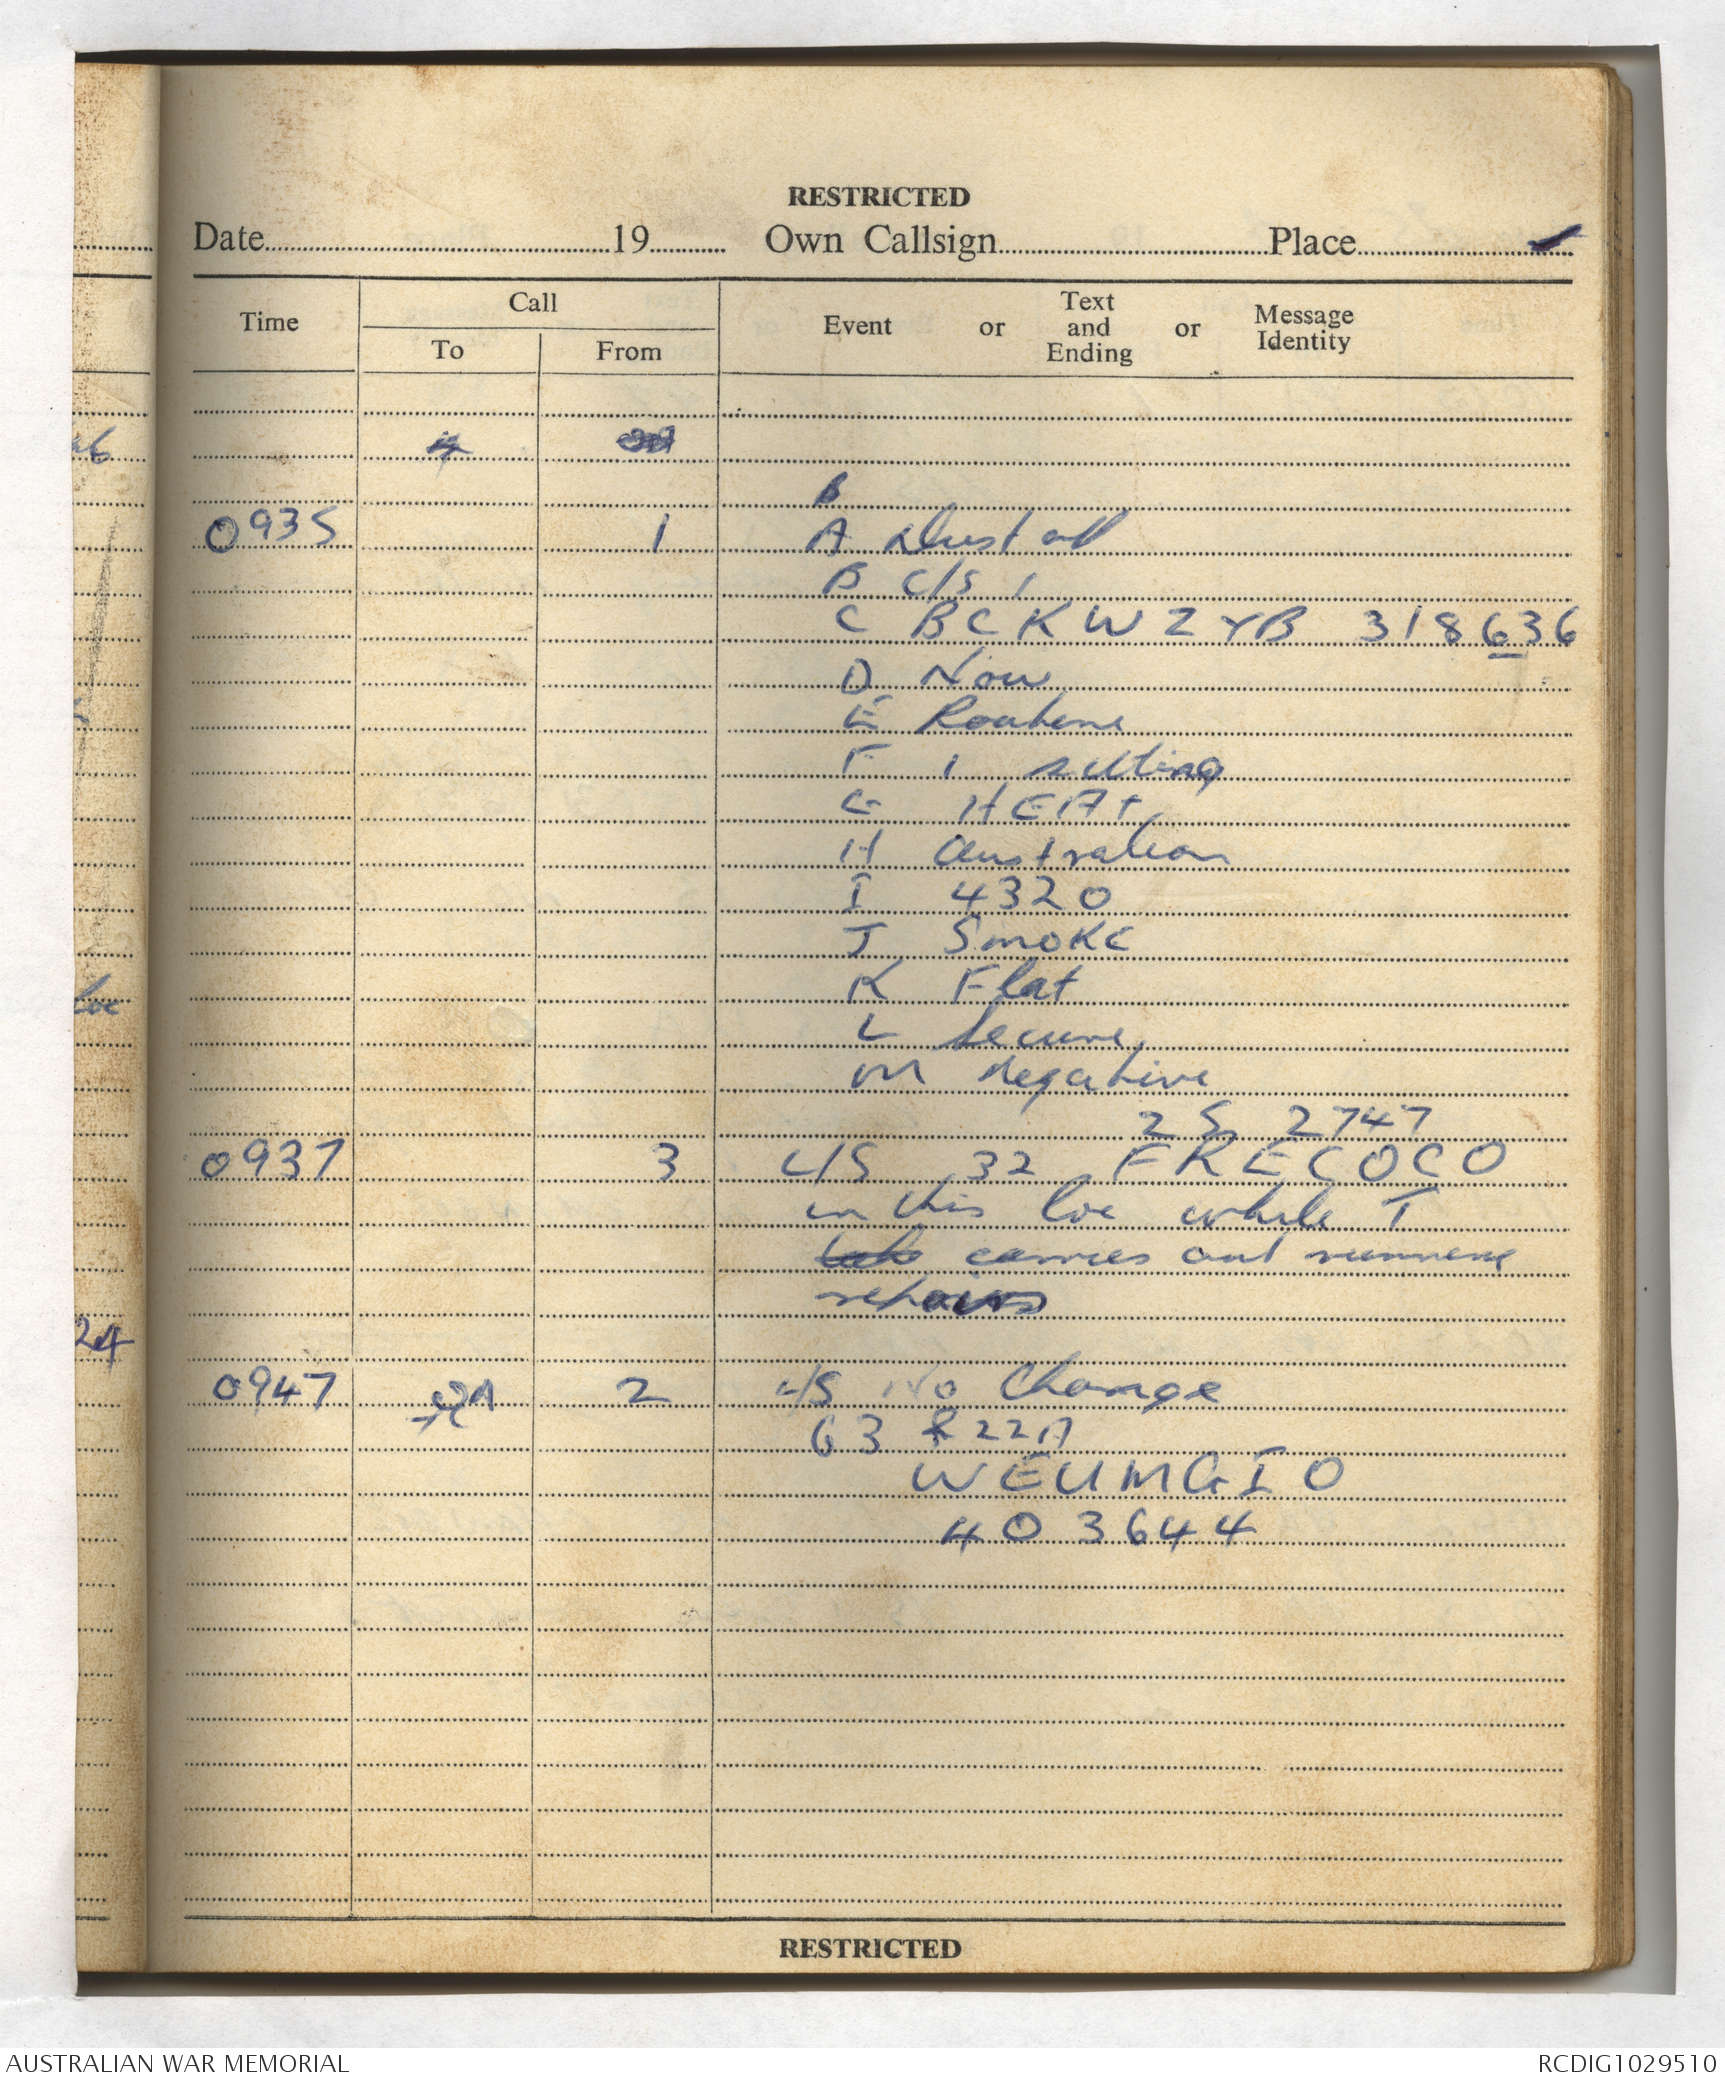 RESTRICTED
Date 19 Own Callsign Place
Time Call Event or Text and Ending or Message Identity
To From
4
B
0935 1 A Dust off
B C/S 1
C BCKWZYB 318636
D Now
E Routene
F 1 sitting
G HEAT
H Australian
I 4320
J Smoke
K Flat
L Secure
M Negative
25 2747
0937 3 C/S 32 FRECOCO
in this loc while T
carries out running
repairs
0947 2 C/S No Change
63 & 22A
WEUMGIO
403644
24
loc
RESTRICTED
AUSTRALIAN WAR MEMORIAL
RCDIG1029510